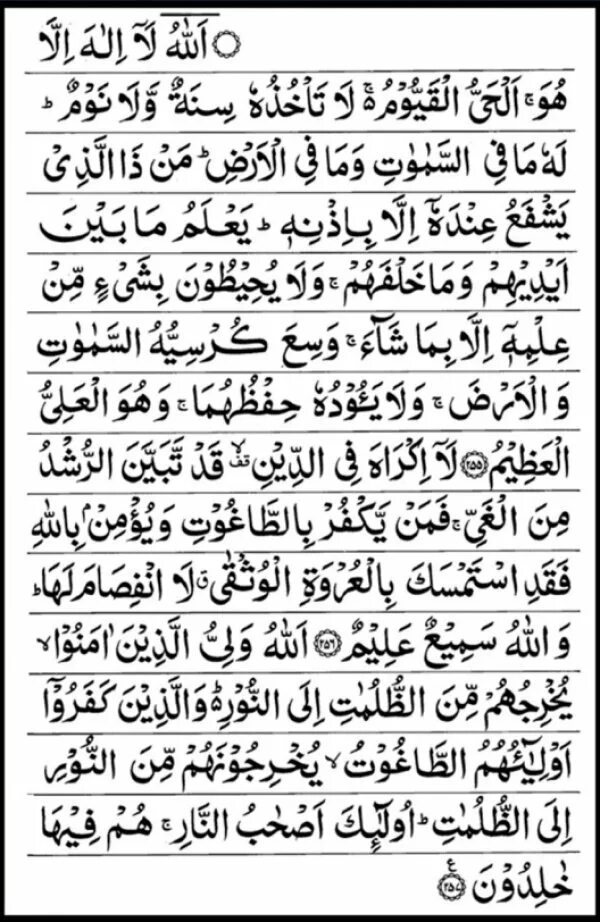 ۝ اَللّٰهُ لَاۤ اِلٰهَ اِلَّا
هُوَ ۚ اَلْحَیُّ الْقَیُّوْمُ ۚ۬ لَا تَاْخُذُهٗ سِنَةٌ وَّلَا نَوْمٌ ؕ
لَهٗ مَا فِی السَّمٰوٰتِ وَمَا فِی الْاَرْضِ ؕ مَنْ ذَا الَّذِیْ
یَشْفَعُ عِنْدَهٗۤ اِلَّا بِاِذْنِهٖ ؕ یَعْلَمُ مَا بَیْنَ
اَیْدِیْهِمْ وَمَا خَلْفَهُمْ ۚ وَلَا یُحِیْطُوْنَ بِشَیْءٍ مِّنْ
عِلْمِهٖۤ اِلَّا بِمَا شَآءَ ۚ وَسِعَ كُرْسِیُّهُ السَّمٰوٰتِ
وَالْاَرْضَ ۚ وَلَا یَـُٔوْدُهٗ حِفْظُهُمَا ۚ وَهُوَ الْعَلِیُّ
الْعَظِیْمُ ۝۲۵۵ لَاۤ اِكْرَاهَ فِی الدِّیْنِ ۙ۫ قَدْ تَّبَیَّنَ الرُّشْدُ
مِنَ الْغَیِّ ۚ فَمَنْ یَّكْفُرْ بِالطَّاغُوْتِ وَیُؤْمِنْۢ بِاللّٰهِ
فَقَدِ اسْتَمْسَكَ بِالْعُرْوَةِ الْوُثْقٰی ۗ لَا انْفِصَامَ لَهَا ؕ
وَاللّٰهُ سَمِیْعٌ عَلِیْمٌ ۝۲۵۶ اَللّٰهُ وَلِیُّ الَّذِیْنَ اٰمَنُوْا ۙ
یُخْرِجُهُمْ مِّنَ الظُّلُمٰتِ اِلَی النُّوْرِ ؕ۬ وَالَّذِیْنَ كَفَرُوْۤا
اَوْلِیٰٓـُٔهُمُ الطَّاغُوْتُ ۙ یُخْرِجُوْنَهُمْ مِّنَ النُّوْرِ
اِلَی الظُّلُمٰتِ ؕ اُولٰٓىِٕكَ اَصْحٰبُ النَّارِ ۚ هُمْ فِیْهَا
خٰلِدُوْنَ ۝۲۵۷ ع